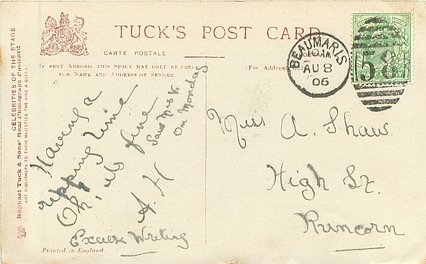 TUCK'S POST CARD
CARTE POSTALE
IF SENT ABROAD, THIS SPACE MAY ONLY BE USED
FOR NAME AND ADDRESS OF SENDER.
For Address
CELEBRITIES OF THE STAGE
Raphael Tuck & Sons'
BEAUMARIS
AU 8
06
58
Having a
ripping time
Oh, it's fine
Saw
on Monday
A. H
Excuse Writing
Miss A. Shaw
High St.
Runcorn
Printed in England